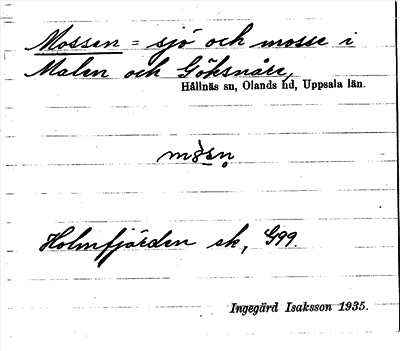 Mossen = sjö och mosse i
Malen och Göksnåre,
Hållnäs sn, Olands hd, Uppsala län.
Holmfjärden sk, G99.
Ingegärd Isaksson 1935.